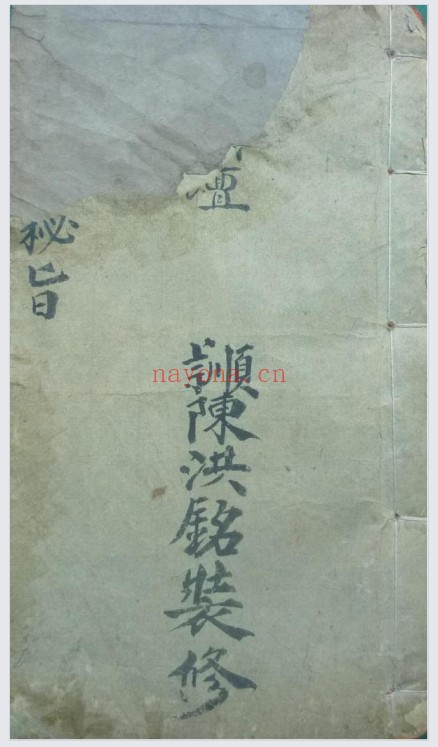 陳洪銘裝修
秘旨
nayona.cn